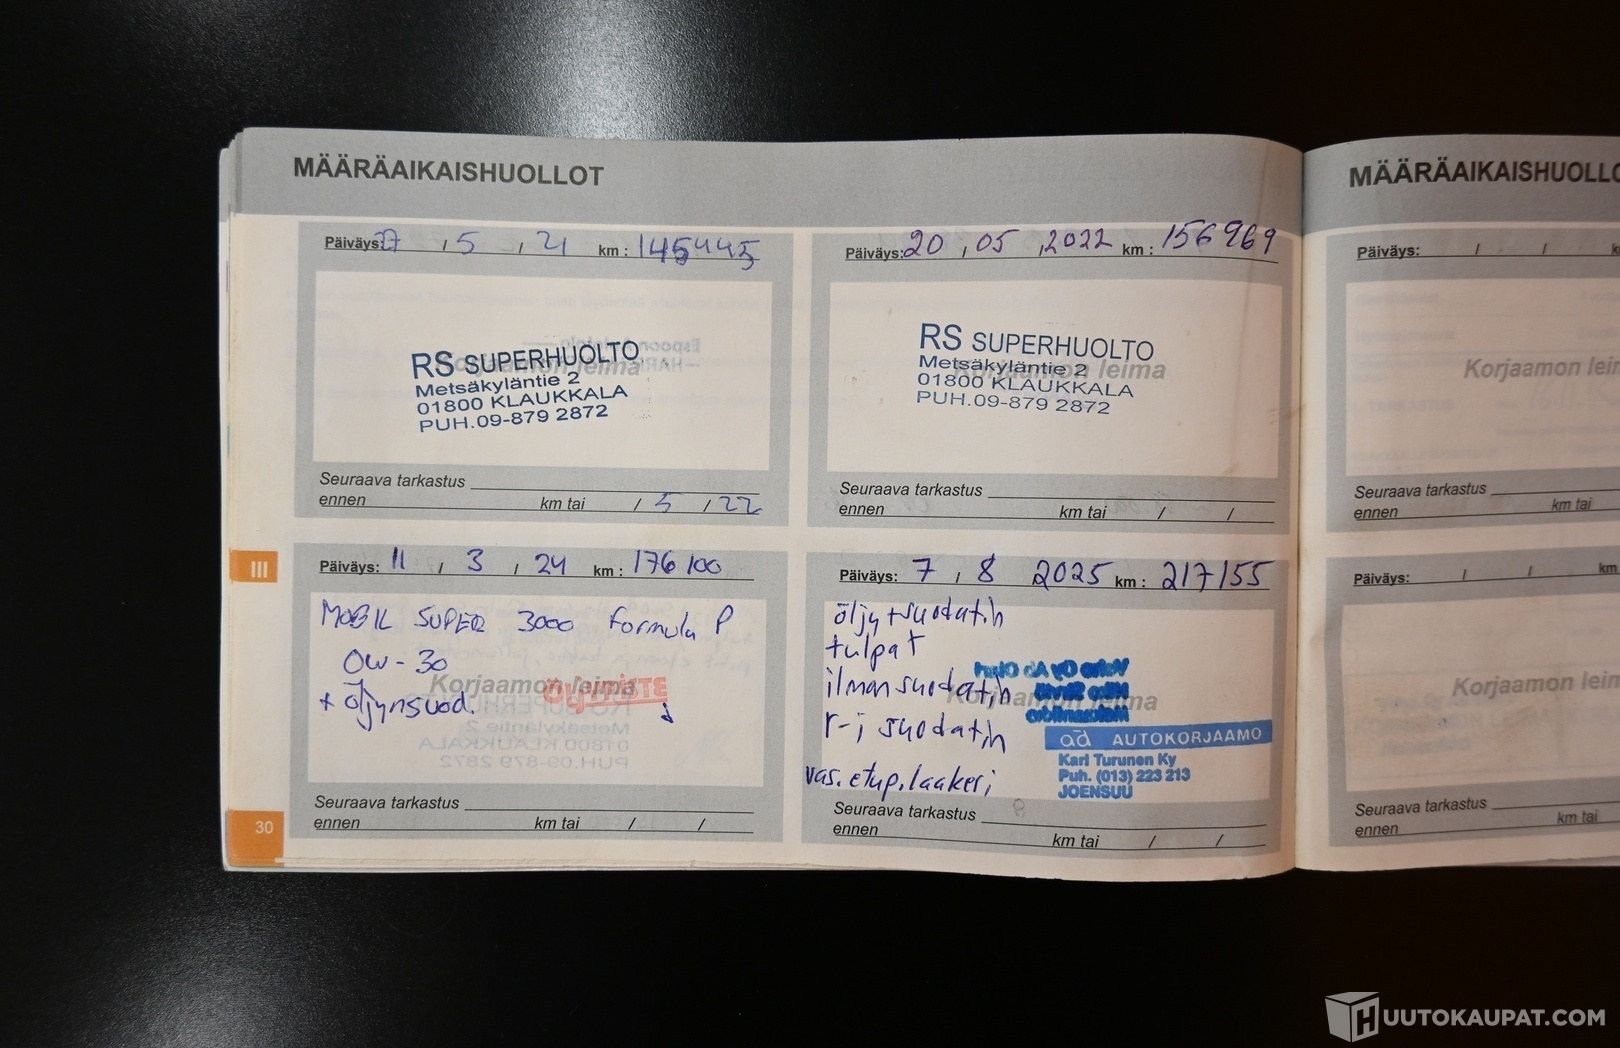 MÄÄRÄAIKAISHUOLLOT
Päiväys: 27 / 5 / 21 km : 145445
RS SUPERHUOLTO
Korjaamon leima
Metsäkyläntie 2
01800 KLAUKKALA
PUH.09-879 2872
Seuraava tarkastus
ennen km tai / 5 / 22
Päiväys: 20 / 05 / 2022 km : 156969
RS SUPERHUOLTO
Korjaamon leima
Metsäkyläntie 2
01800 KLAUKKALA
PUH.09-879 2872
Seuraava tarkastus
ennen km tai / /
Päiväys: 11 / 3 / 24 km : 176100
MOBIL SUPER 3000 Formula P
0W-30
Korjaamon leima
+ öljynsuod.
Seuraava tarkastus
ennen km tai / /
Päiväys: 7 / 8 2025 km : 217155
öljy+suodatin
tulpat
ilmansuodatin
Korjaamon leima
r-i suodatin
vas.etup.laakeri
ad AUTOKORJAAMO
Kari Turunen Ky
Puh. (013) 223 213
JOENSUU
Seuraava tarkastus
ennen km tai / /
III
30
MÄÄRÄAIKAISHUOLLO
Päiväys: / /
Korjaamon leim
Seuraava tarkastus
ennen km tai
Päiväys: / / km
Korjaamon leim
Seuraava tarkastus
ennen km tai
HUUTOKAUPAT.COM